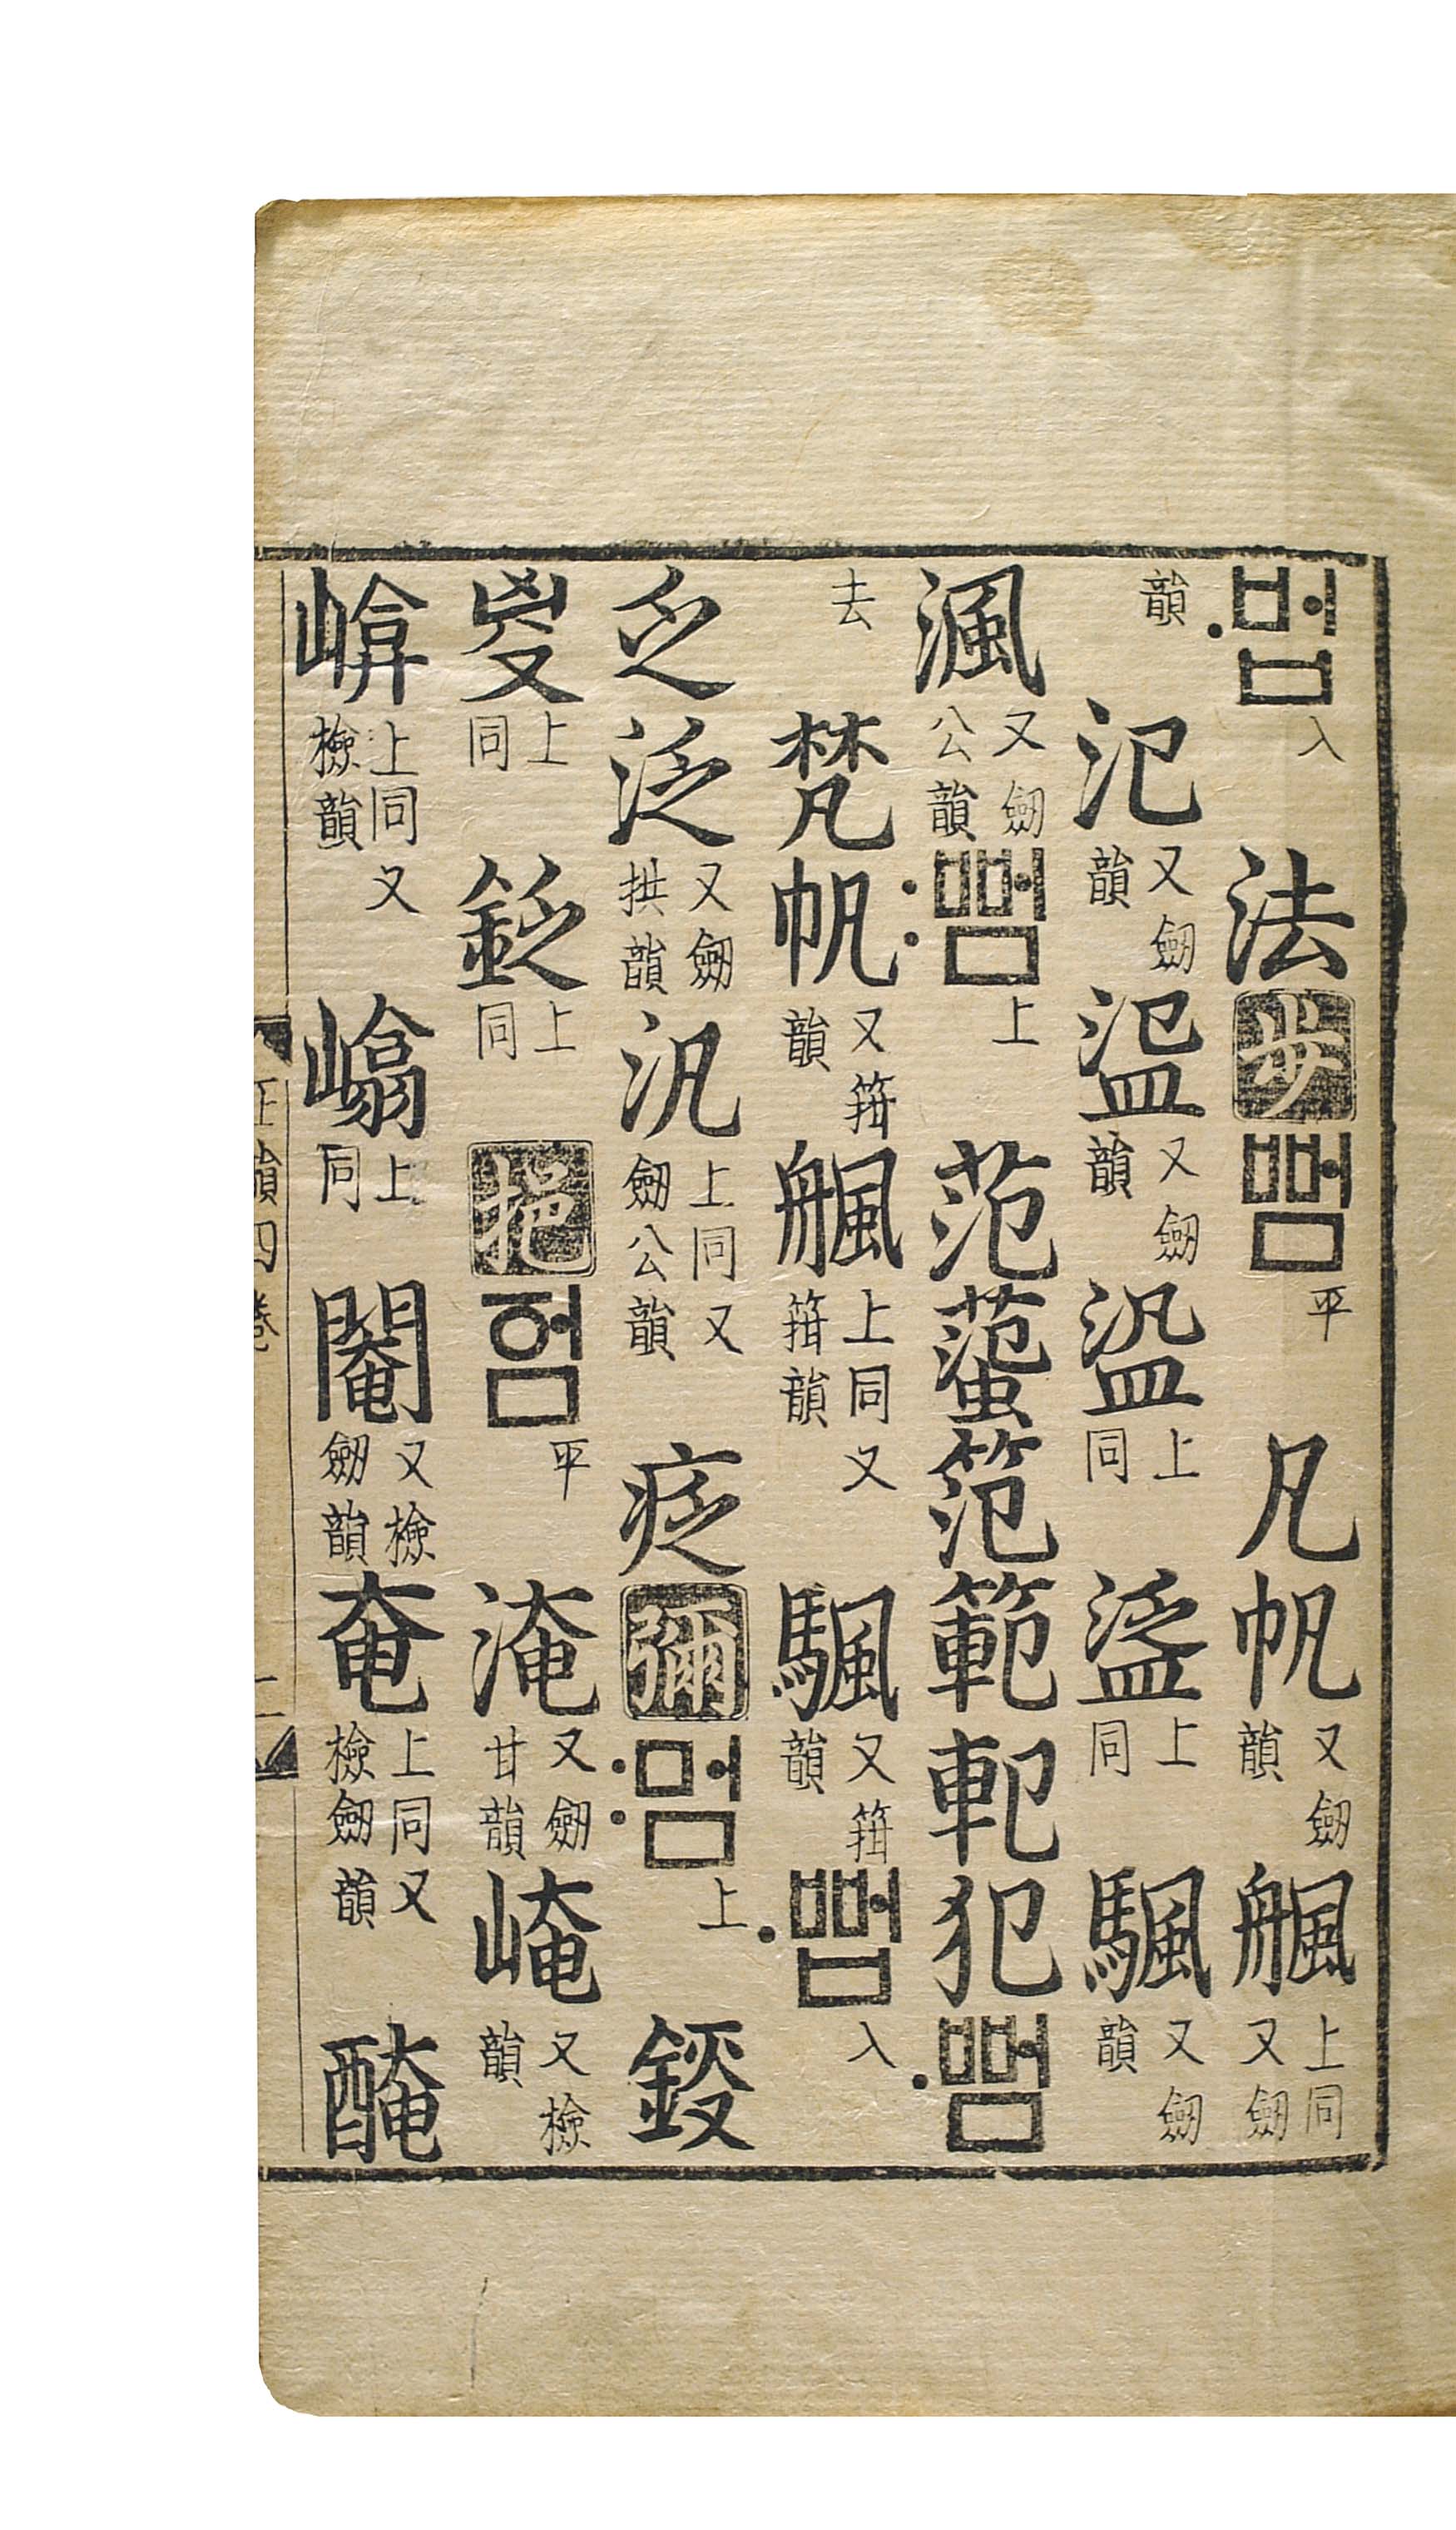 법 入 法 步 뻠 平 凡 帆 又劒韻 䑺 上同又劒
韻 氾 又劒韻 又劒韻 上同 上同 颿 又劒韻
渢 又劒公韻 뻠 上 范 笵 範 軓 犯 뻠
去 梵 帆 又箝韻 䑺 上同又箝韻 颿 又箝韻 뻡 入
乏 泛 又劒拱韻 汎 上同又劒公韻 疺 彌 멈 上 錽
上同 上同 挹 ᅙᅥᆷ 平 淹 又劒甘韻 崦 又檢韻
上同又檢韻 上同 閹 又檢劒韻 奄 上同又檢劒韻 醃